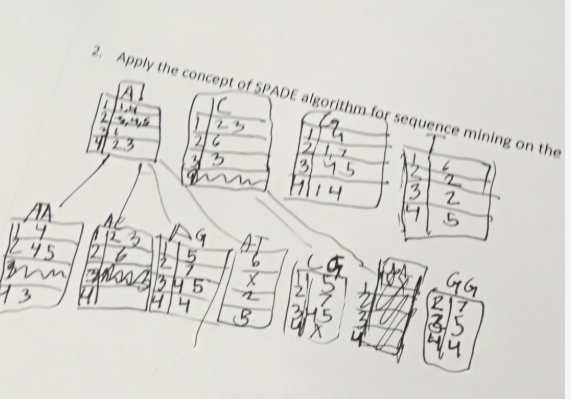 2. Apply the concept of SPADE algorithm for sequence mining on the
A
1 1,4
2
3 1
4 2 3
C
1 2 3
2 6
3 3
4
G
1
2 1,7
3 4 5
4 1 4
1 6
2 2
3 2
4 5
AA
1 4
2 4 5
3
4 3
AC
1 2 3
2 6
3
4
AG
1 5
2 7
3 4 5
4 4
AT
6
X
2
5
CG
1 5
2 7
3 4 5
4 X
1
2
3
4
GG
2 7
3 5
4 4